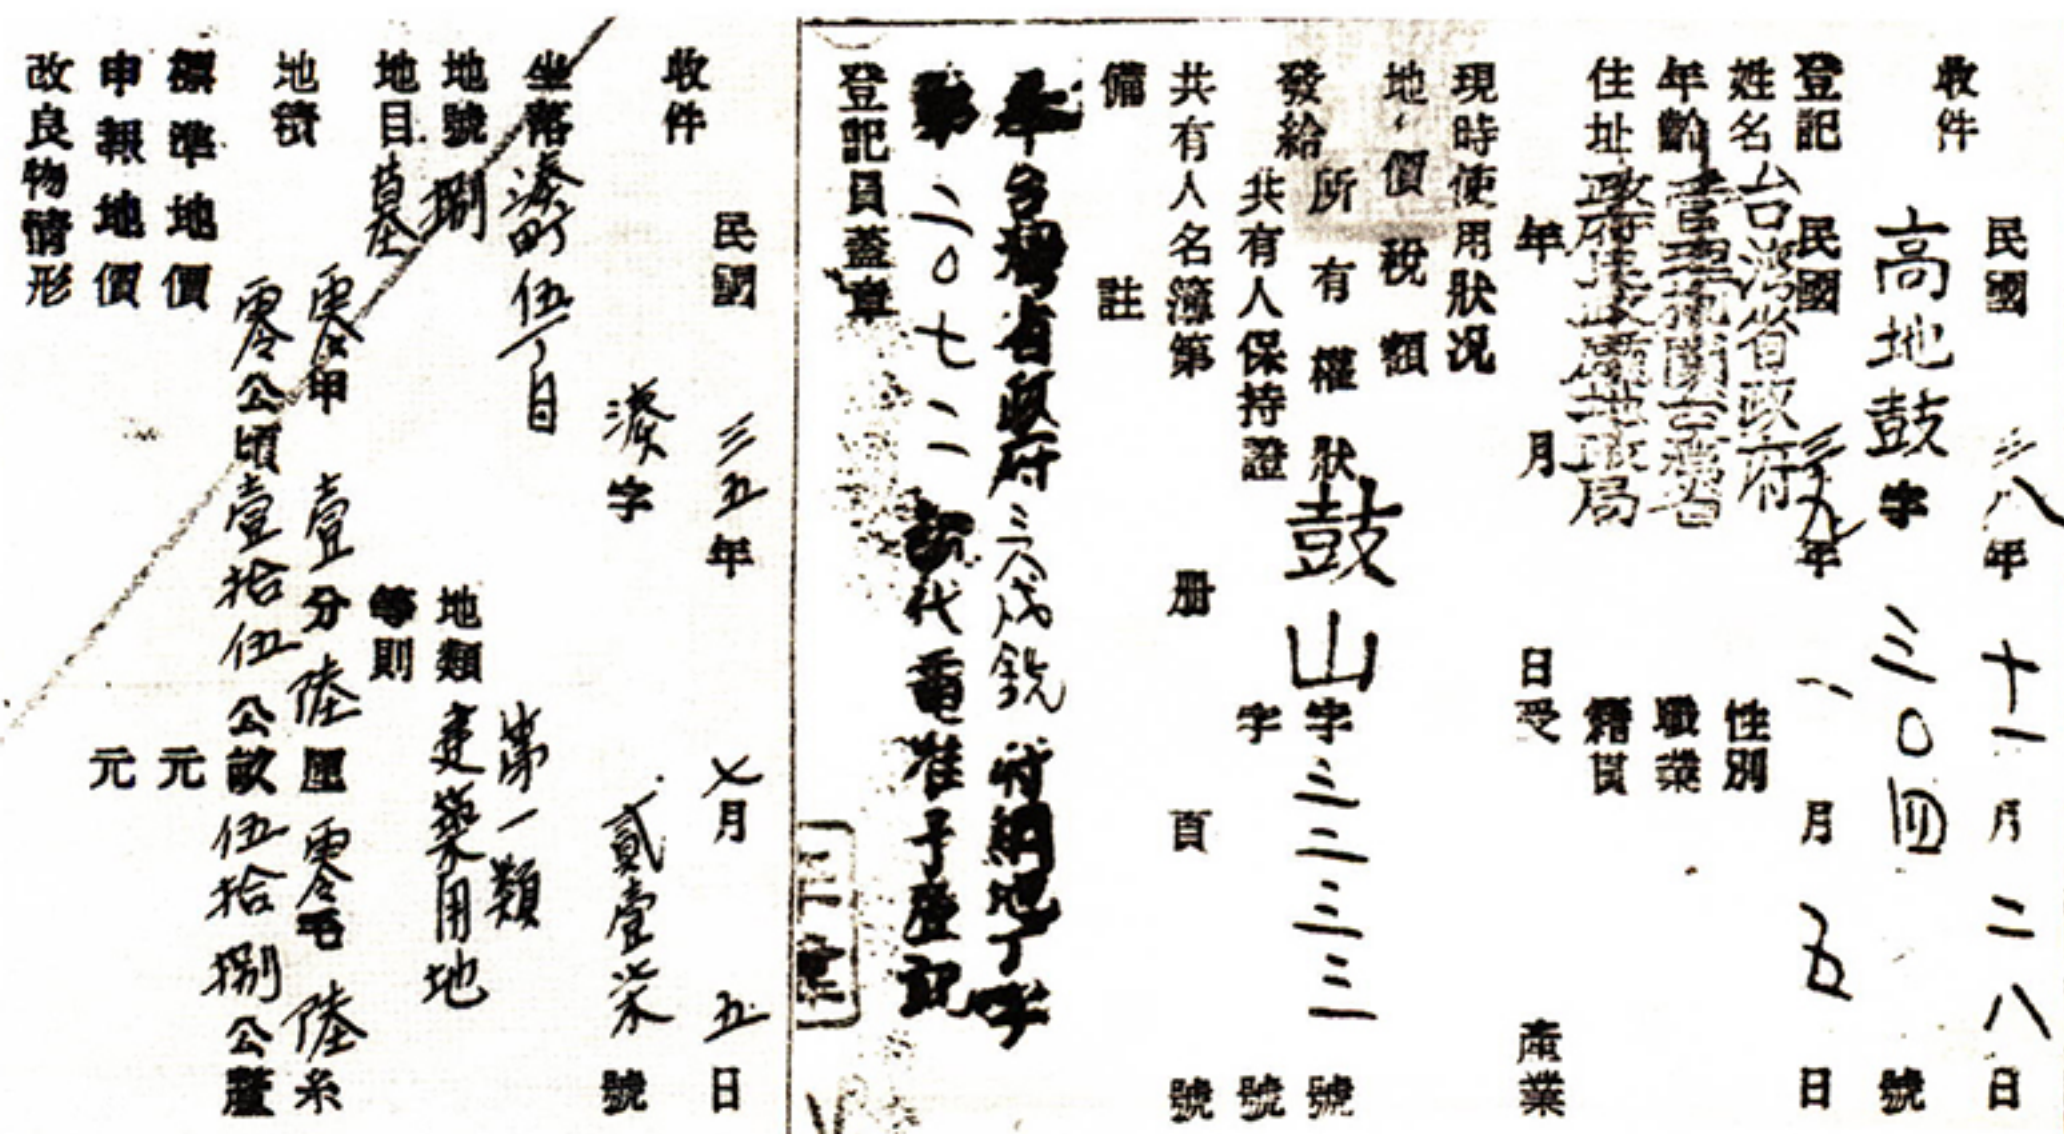 收件
民國三八年十一月二八日
高地鼓字三〇四號
登記
民國三九年一月五日
姓名 台灣省政府 性別
年齡 管理機關台灣省 職業
住址 政府民政廳地政局 籍貫
年 月 日受 產業
現時使用狀況
地價稅額
發給
所有權狀 鼓山字三二三三號
共有人保持證 字 號
共有人名簿第 册 頁 號
備註
奉台灣省政府三八戌銑府綱地丁字
第二〇七二號代電准予登記
登記員蓋章
收件
民國三五年七月五日
湊字 貳壹柒號
坐落 湊町伍丁目
地號 捌
地類 第一類
建築用地
地目 墓
等則
地積
零甲壹分陸厘零毛陸糸
零公頃壹拾伍公畝伍拾捌公釐
標準地價 元
申報地價 元
改良物情形